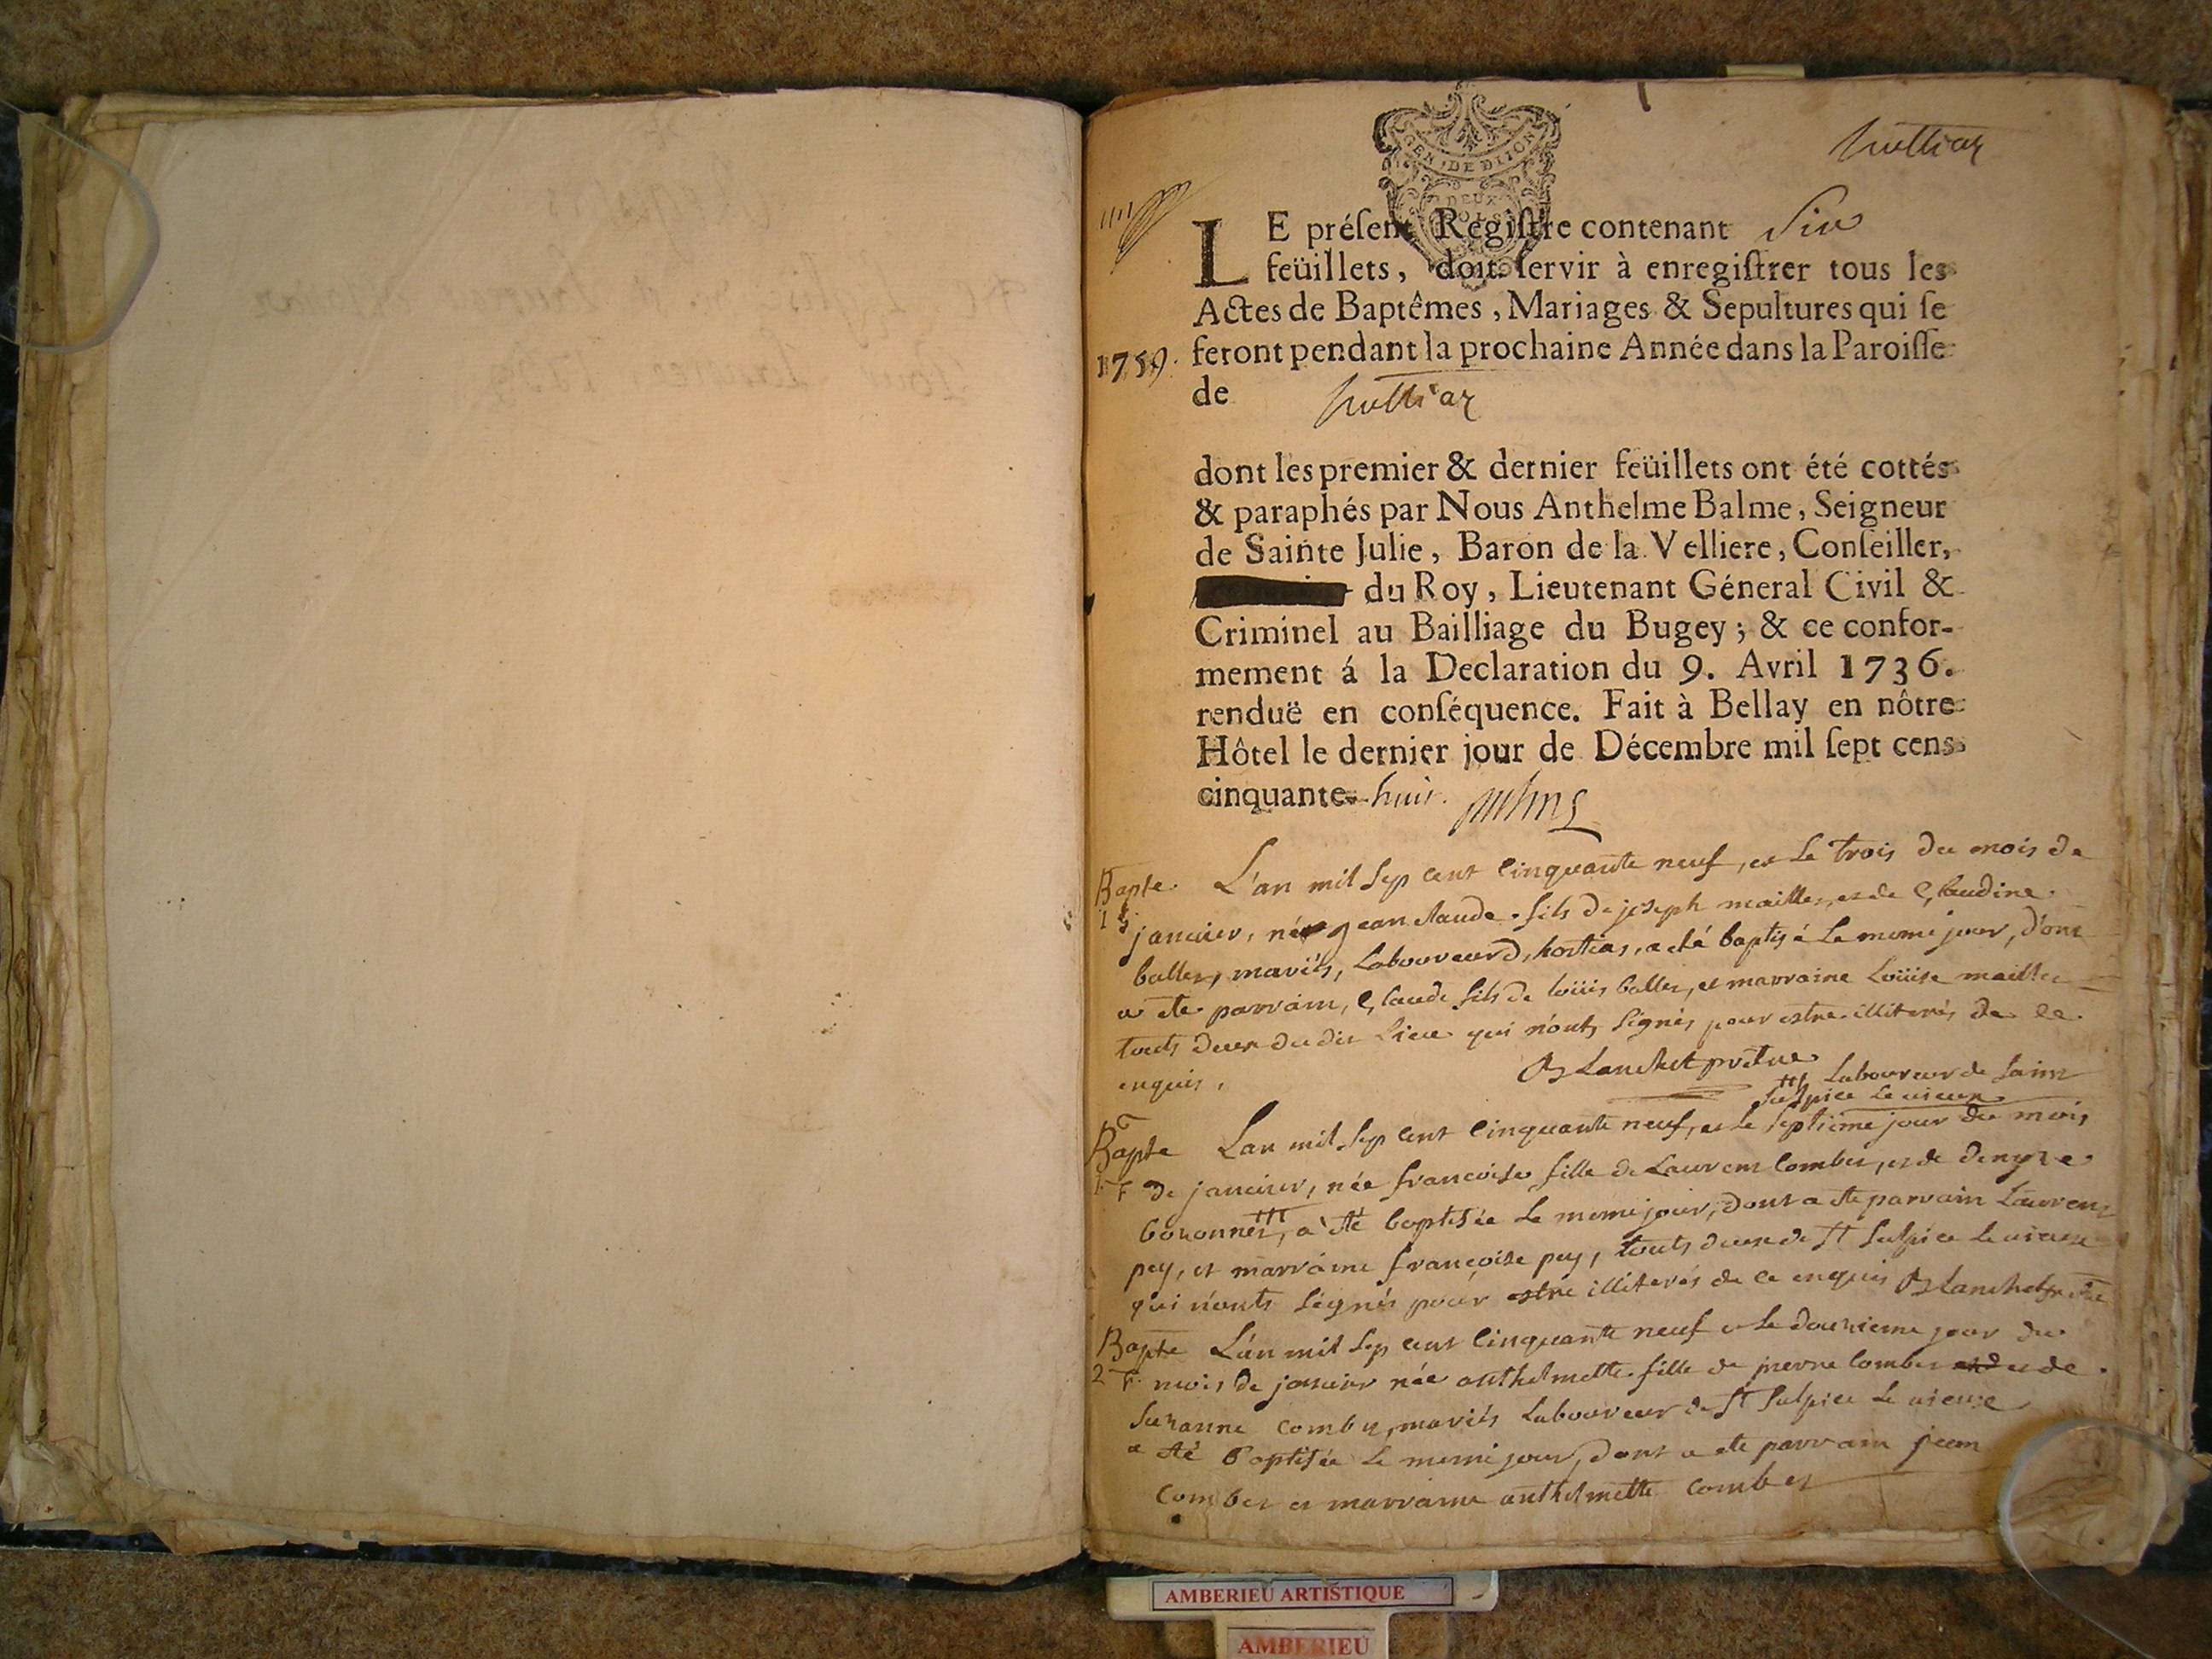 GEN. DE DIJON
DEUX
SOLS
LE préſent Regiſtre contenant Six
feüillets, doit ſervir à enregiſtrer tous les
Actes de Baptêmes, Mariages & Sepultures qui ſe
1759. feront pendant la prochaine Année dans la Paroiſſe
de
dont les premier & dernier feüillets ont été cottés
& paraphés par Nous Anthelme Balme, Seigneur
de Sainte Julie, Baron de la Velliere, Conſeiller,
du Roy, Lieutenant Géneral Civil &
Criminel au Bailliage du Bugey; & ce confor-
mement á la Declaration du 9. Avril 1736.
renduë en conſéquence. Fait à Bellay en nôtre
Hôtel le dernier jour de Décembre mil ſept cens
cinquante-huit.
Bapte L'an mil sep cent cinquante neuf, et le trois du mois de
janvier, né jean claude fils de joseph maillet, et de Claudine
ballet, mariés, laboureur d'hostias, a été baptisé le meme jour, dont
a ete parrain, Claude fils de loüis ballet, et marraine Loüise maillet
touts deux du dit lieu qui n'onts signés pour estre illiterés de ce
enquis. Blanchet prêtre
laboureur de saint
sulpice le vieux
Bapte L'an mil sep cent cinquante neuf, et le septiême jour du mois
F de janvier, née francoise fille de Laurent combet, et de denyse
a été baptisée le meme jour, dont a ete parrain Laurent
pey, et marraine françoise pey, touts deux de St sulpice le vieux
qui n'onts signés pour estre illiterés de ce enquis Blanchet prêtre
Bapte L'an mil sep cent cinquante neuf et le douzieme jour du
2 F. mois de janvier née anthelmette fille de pierre combet et de
suzanne combet, mariés laboureur de St sulpice le vieux
a été baptisée le meme jour, dont a ete parrain jean
combet et marraine anthelmette combet
AMBERIEU ARTISTIQUE
AMBERIEU